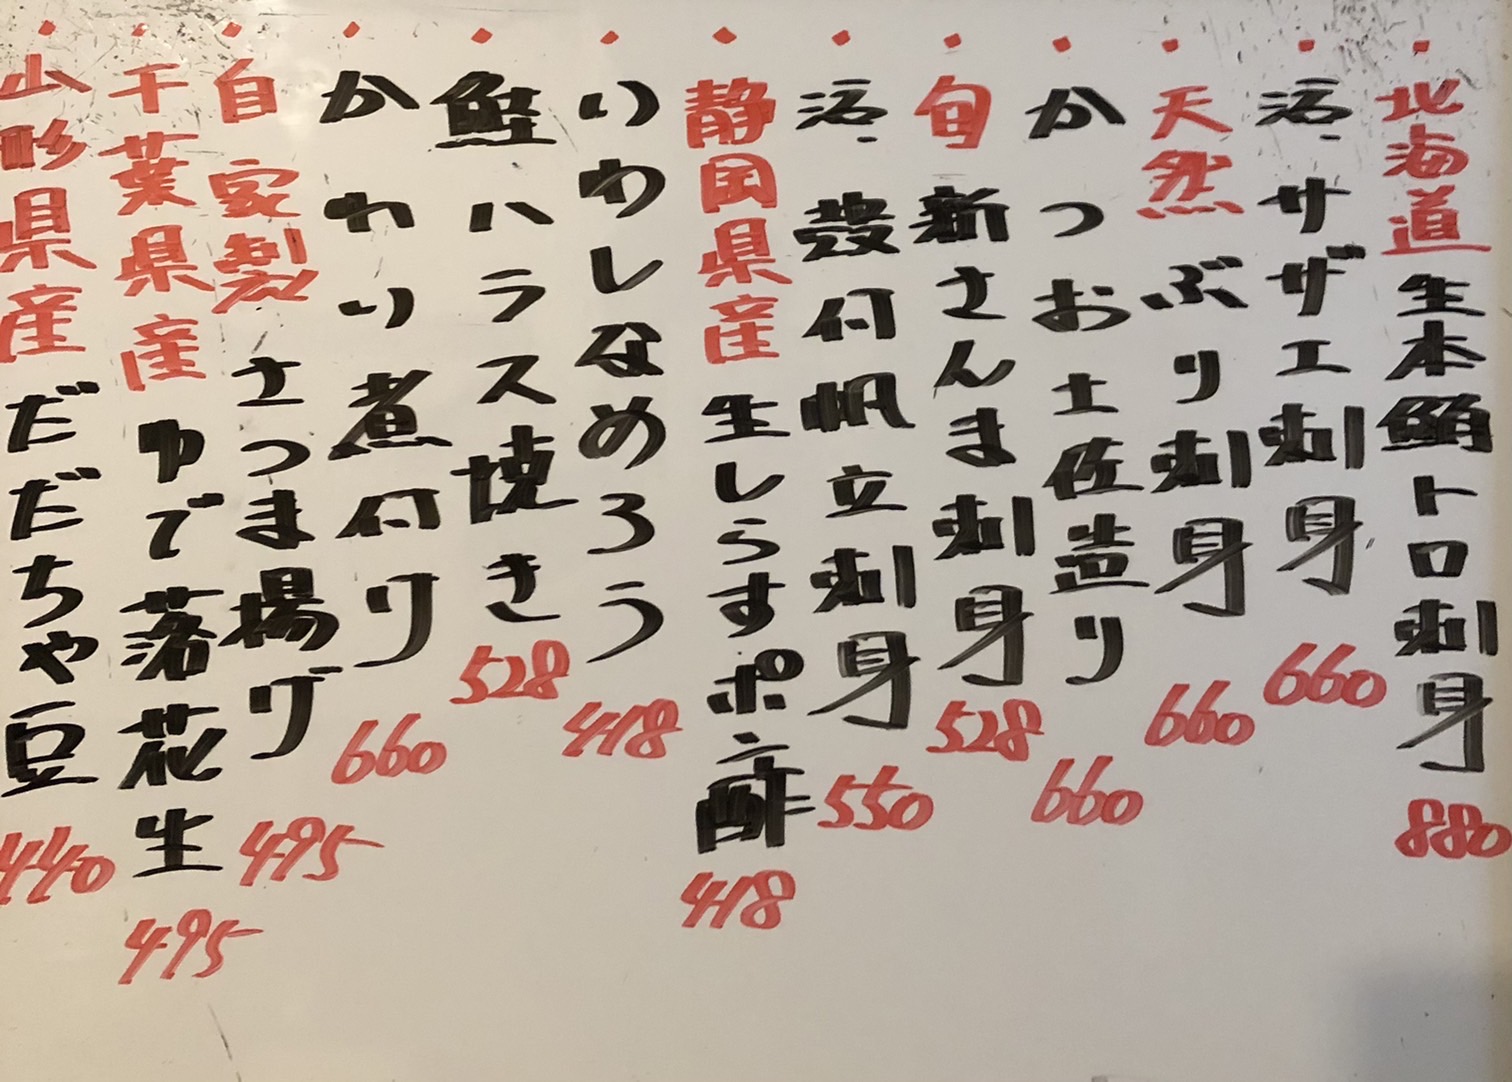 ・北海道生本鮪トロ刺身 880
・活、サザエ刺身 660
・天然ぶり刺身 660
・かつお土佐造り 660
・旬新さんま刺身 528
・活、殻付帆立刺身 550
・静岡県産生しらすポン酢 418
・いわしなめろう 418
・鮭ハラス焼き 528
・かわり煮付け 660
・自家製さつま揚げ 495
・千葉県産ゆで落花生 495
・山形県産だだちゃ豆 440